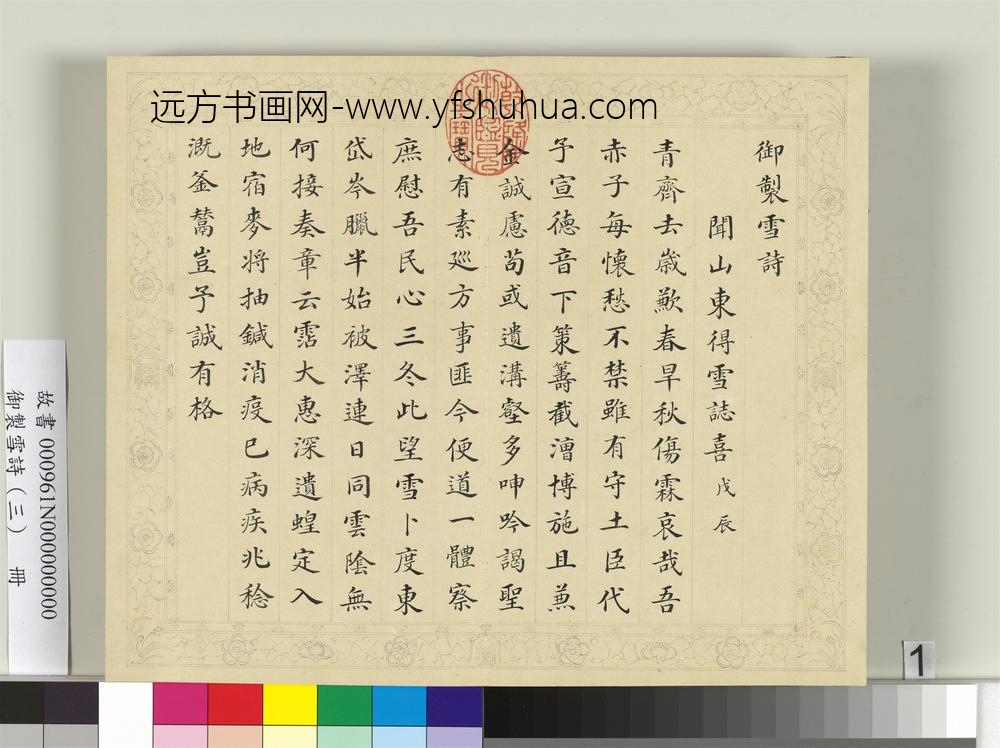 远方书画网-www.yfshuhua.com
御製雪詩
聞山東得雪誌喜戊辰
青齊去歲歉春旱秋傷霖哀哉吾
赤子每懷愁不禁雖有守土臣代
予宣德音下策籌截漕博施且兼
金誠慮苟或遺溝壑多呻吟謁聖
志有素巡方事匪今便道一體察
庶慰吾民心三冬此望雪卜度東
岱岑臘半始被澤連日同雲陰無
何接奏章云霑大惠深遺蝗定入
地宿麥將抽鍼消疫已病疾兆稔
溉釜鬵豈予誠有格
故書 000961N000000000
御製雪詩(三) 冊
1